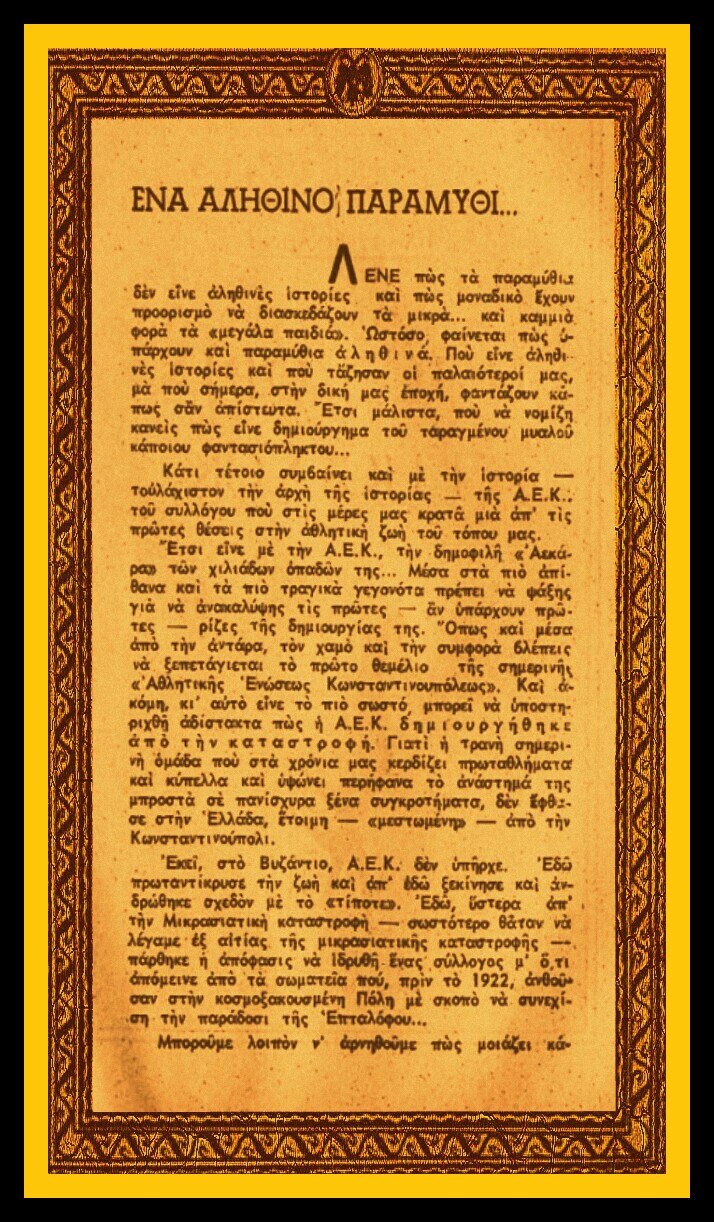 ΕΝΑ ΑΛΗΘΙΝΟ ΠΑΡΑΜΥΘΙ...
ΛΕΝΕ πὼς τὰ παραμύθια
δὲν εἶνε ἀληθινὲς ἱστορίες καὶ πὼς μοναδικὸ ἔχουν
προορισμὸ νὰ διασκεδάζουν τὰ μικρὰ... καὶ καμμιὰ
φορὰ τὰ «μεγάλα παιδιά». Ὡστόσο, φαίνεται πὼς ὑ-
πάρχουν καὶ παραμύθια ἀληθινά. Ποὺ εἶνε ἀληθι-
νὲς ἱστορίες καὶ ποὺ τἄζησαν οἱ παλαιότεροί μας,
μὰ ποὺ σήμερα, στὴν δική μας ἐποχή, φαντάζουν κά-
πως σὰν ἀπίστευτα. Ἔτσι μάλιστα, ποὺ νὰ νομίζη
κανεὶς πὼς εἶνε δημιούργημα τοῦ ταραγμένου μυαλοῦ
κάποιου φαντασιόπληκτου...
Κάτι τέτοιο συμβαίνει καὶ μὲ τὴν ἱστορία —
τοὐλάχιστον τὴν ἀρχὴ τῆς ἱστορίας — τῆς Α.Ε.Κ.,
τοῦ συλλόγου ποὺ στὶς μέρες μας κρατᾶ μιὰ ἀπ' τὶς
πρῶτες θέσεις στὴν ἀθλητικὴ ζωὴ τοῦ τόπου μας.
Ἔτσι εἶνε μὲ τὴν Α.Ε.Κ., τὴν δημοφιλῆ «Ἀεκά-
ρα» τῶν χιλιάδων ὀπαδῶν της... Μέσα στὰ πιὸ ἀπί-
θανα καὶ τὰ πιὸ τραγικὰ γεγονότα πρέπει νὰ ψάξης
γιὰ νὰ ἀνακαλύψης τὶς πρῶτες — ἂν ὑπάρχουν πρῶ-
τες — ρίζες τῆς δημιουργίας της. Ὅπως καὶ μέσα
ἀπὸ τὴν ἀντάρα, τὸν χαμὸ καὶ τὴν συμφορὰ βλέπεις
νὰ ξεπετάγιεται τὸ πρῶτο θεμέλιο τῆς σημερινῆς
«Ἀθλητικῆς Ἑνώσεως Κωνσταντινουπόλεως». Καὶ ἀ-
κόμη, κι' αὐτὸ εἶνε τὸ πιὸ σωστό, μπορεῖ νὰ ὑποστη-
ριχθῆ ἀδίστακτα πὼς ἡ Α.Ε.Κ. δημιουργήθηκε
ἀπὸ τὴν καταστροφή. Γιατὶ ἡ τρανὴ σημερι-
νὴ ὁμάδα ποὺ στὰ χρόνια μας κερδίζει πρωταθλήματα
καὶ κύπελλα καὶ ὑψώνει περήφανα τὸ ἀνάστημά της
μπροστὰ σὲ πανίσχυρα ξένα συγκροτήματα, δὲν ἔφθα-
σε στὴν Ἑλλάδα, ἕτοιμη — «μεστωμένη» — ἀπὸ τὴν
Κωνσταντινούπολι.
Ἐκεῖ, στὸ Βυζάντιο, Α.Ε.Κ. δὲν ὑπῆρχε. Ἐδῶ
πρωταντίκρυσε τὴν ζωὴ καὶ ἀπ' ἐδῶ ξεκίνησε καὶ ἀν-
δρώθηκε σχεδὸν μὲ τὸ «τίποτε». Ἐδῶ, ὕστερα ἀπ'
τὴν Μικρασιατικὴ καταστροφὴ — σωστότερο θἄταν νὰ
λέγαμε ἐξ αἰτίας τῆς μικρασιατικῆς καταστροφῆς —
πάρθηκε ἡ ἀπόφασις νὰ ἱδρυθῆ ἕνας σύλλογος μ' ὅ,τι
ἀπόμεινε ἀπὸ τὰ σωματεῖα πού, πρὶν τὸ 1922, ἀνθοῦ-
σαν στὴν κοσμοξακουσμένη Πόλη μὲ σκοπὸ νὰ συνεχί-
ση τὴν παράδοσι τῆς Ἑπταλόφου...
Μποροῦμε λοιπὸν ν' ἀρνηθοῦμε πὼς μοιάζει κά-